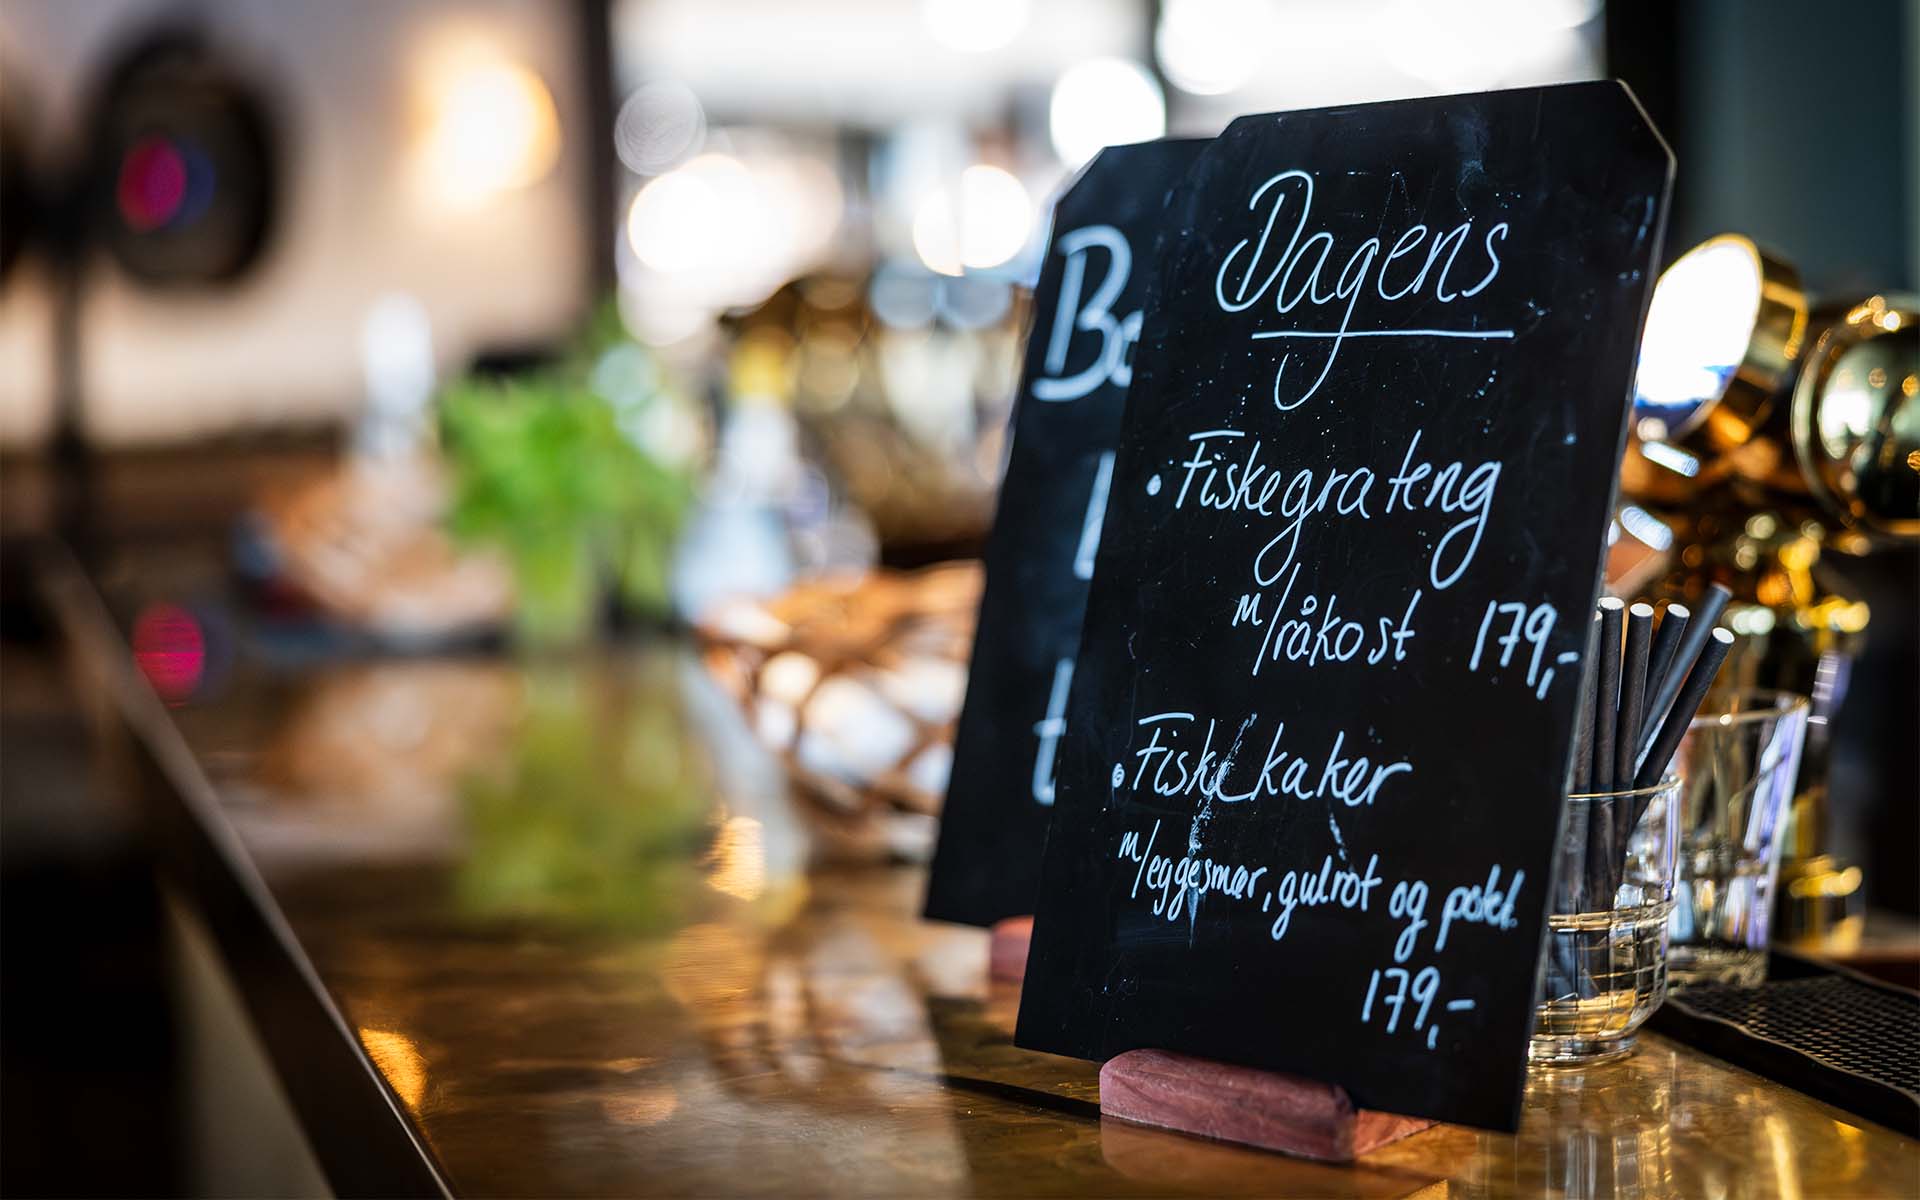 Dagens
• Fiskegrateng
m/råkost 179,-
• Fiskekaker
m/eggesmør, gulrot og potet.
179,-